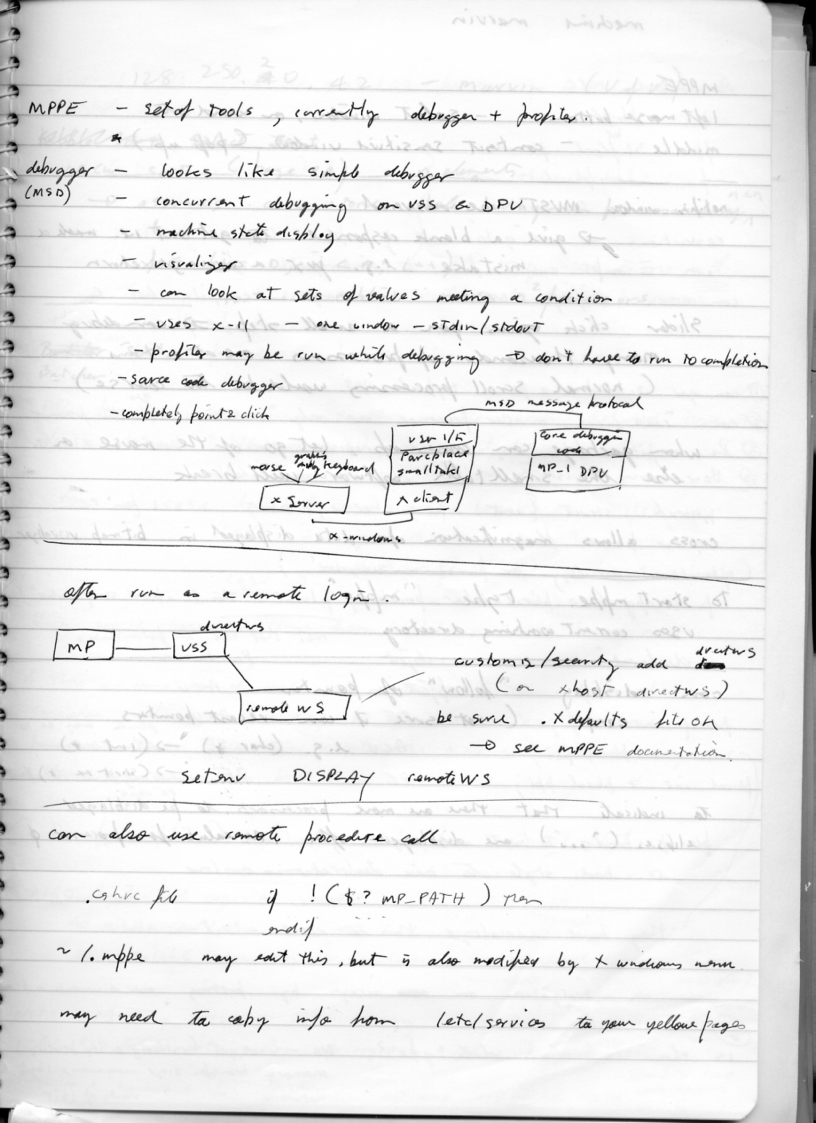 MPPE - set of tools, currently debugger + profiler.
debugger - looks like simple debugger
(MSD) - concurrent debugging on VSS & DPU
- machine state display
- visualizer
- can look at sets of values meeting a condition
- uses X-11 - one window - stdin/stdout
- profiler may be run while debugging → don't have to run to completion
- source code debugger
- completely point & click
MSD message protocol
user i/f
Parcplace
smalltalk
X client
core debuggin
code
MP-1 DPU
mouse keyboard
X Server
X-windows
often run as a remote login.
directws
MP
VSS
remote WS
customiz/security add directws
(or xhost directws)
be sure .Xdefaults file OK
→ see MPPE documentation.
setenv DISPLAY remoteWS
can also use remote procedure call
.cshrc file if !($?MP_PATH) then
endif
~/.mppe may edit this, but is also modified by X windows menu.
may need to copy info from /etc/services to your yellow pages